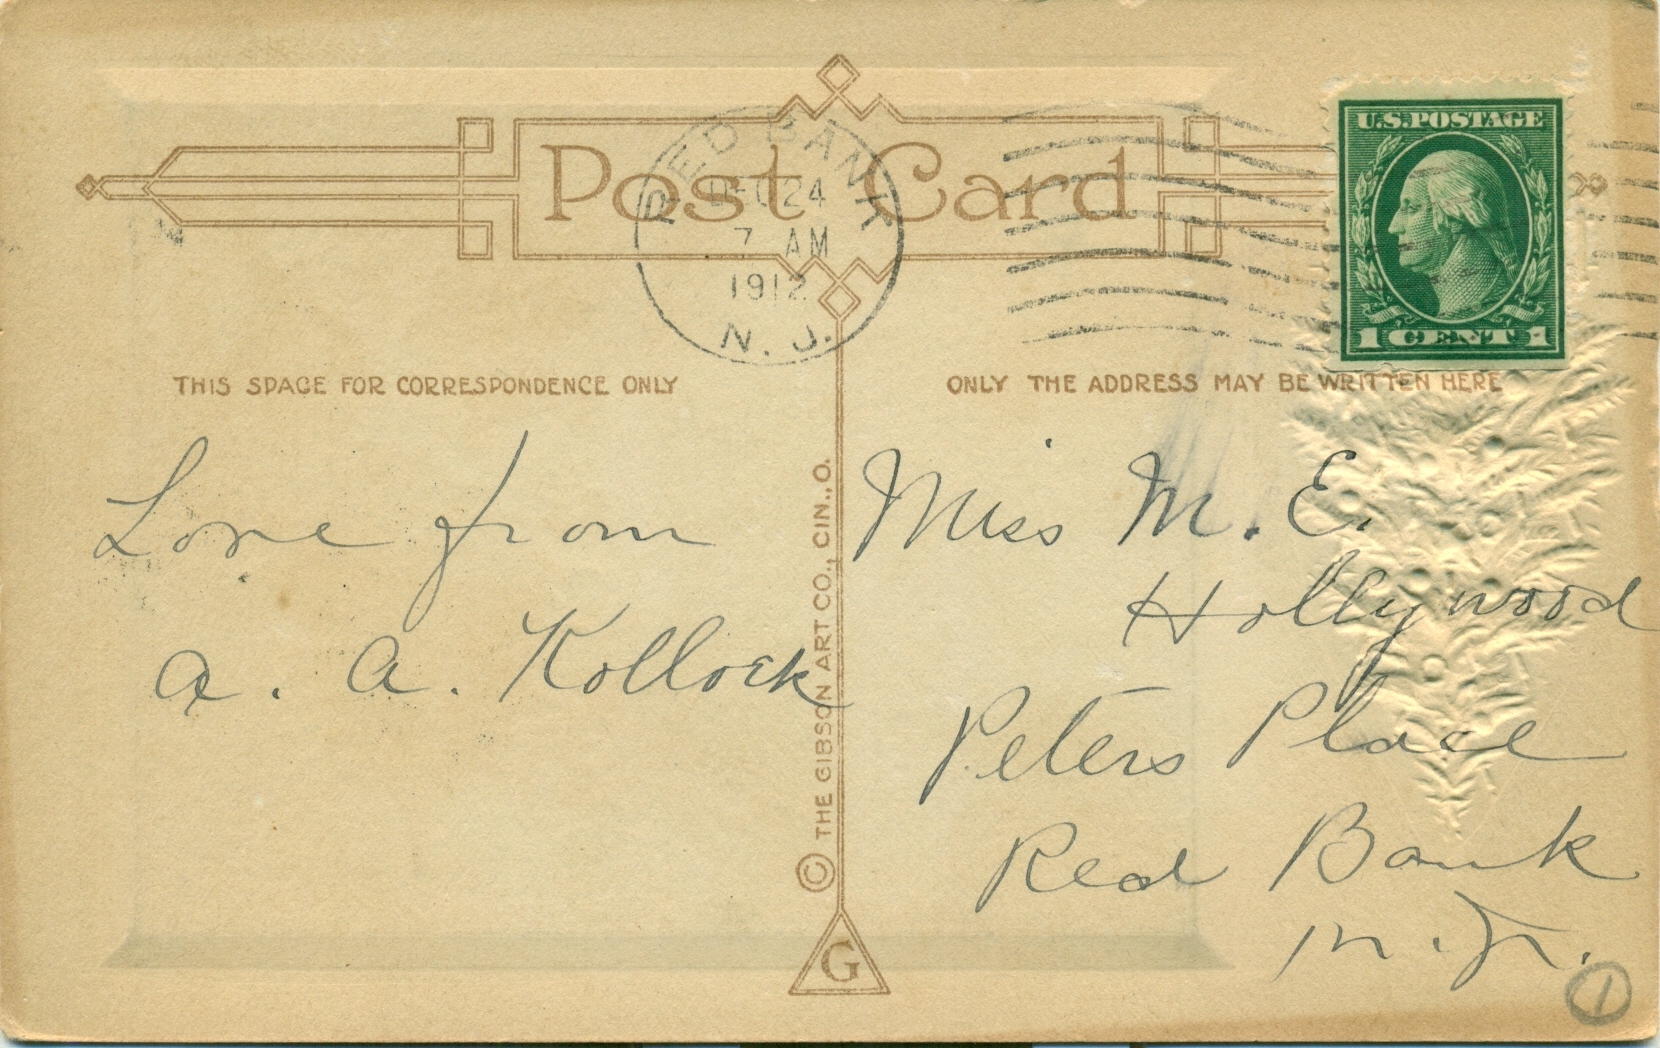 Post Card
RED BANK
DEC 24
7 AM
1912
N. J.
U.S. POSTAGE
1 CENT 1
THIS SPACE FOR CORRESPONDENCE ONLY
ONLY THE ADDRESS MAY BE WRITTEN HERE
Love from
A. A. Kollock
© THE GIBSON ART CO., CIN., O.
G
Miss M. E.
Hollywood
Peters Place
Red Bank
N. J.
1